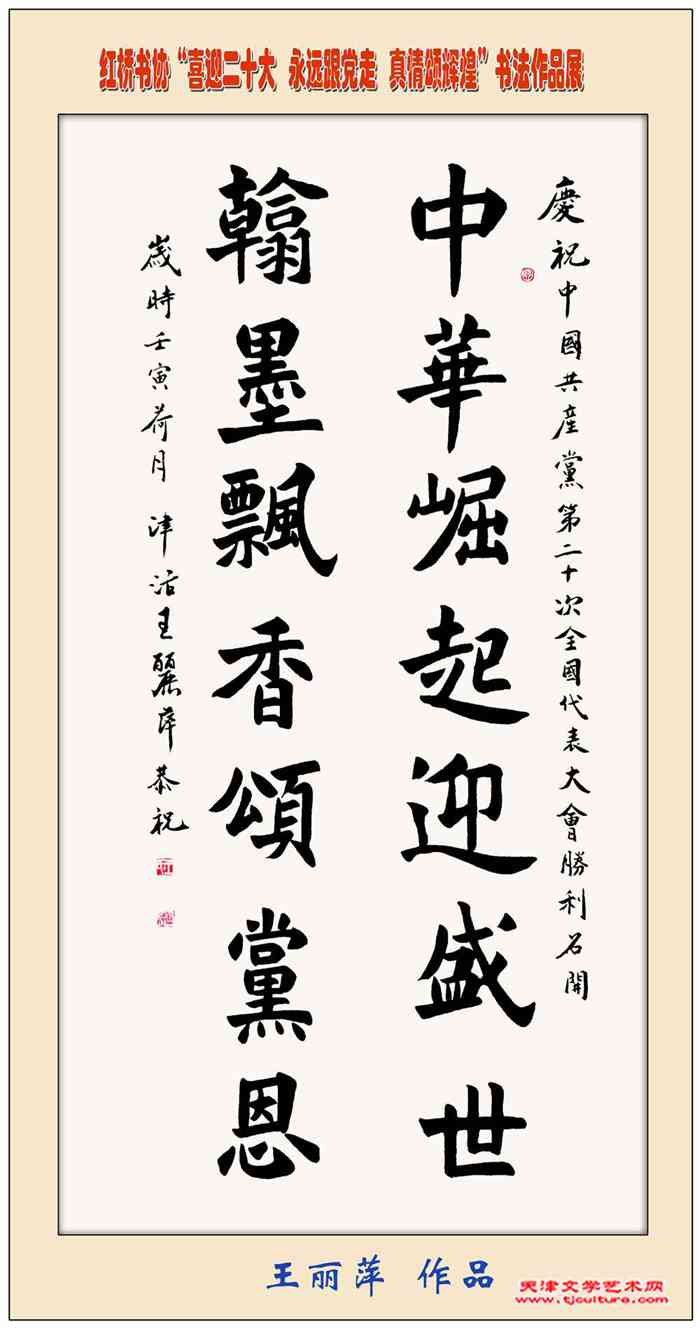 红桥书协“喜迎二十大 永远跟党走 真情颂辉煌”书法作品展
慶祝中國共産黨第二十次全國代表大會勝利召開
中華崛起迎盛世
翰墨飄香頌黨恩
歲時壬寅荷月 津沽王麗萍恭祝
王丽萍 作品
天津文学艺术网
www.tjculture.com